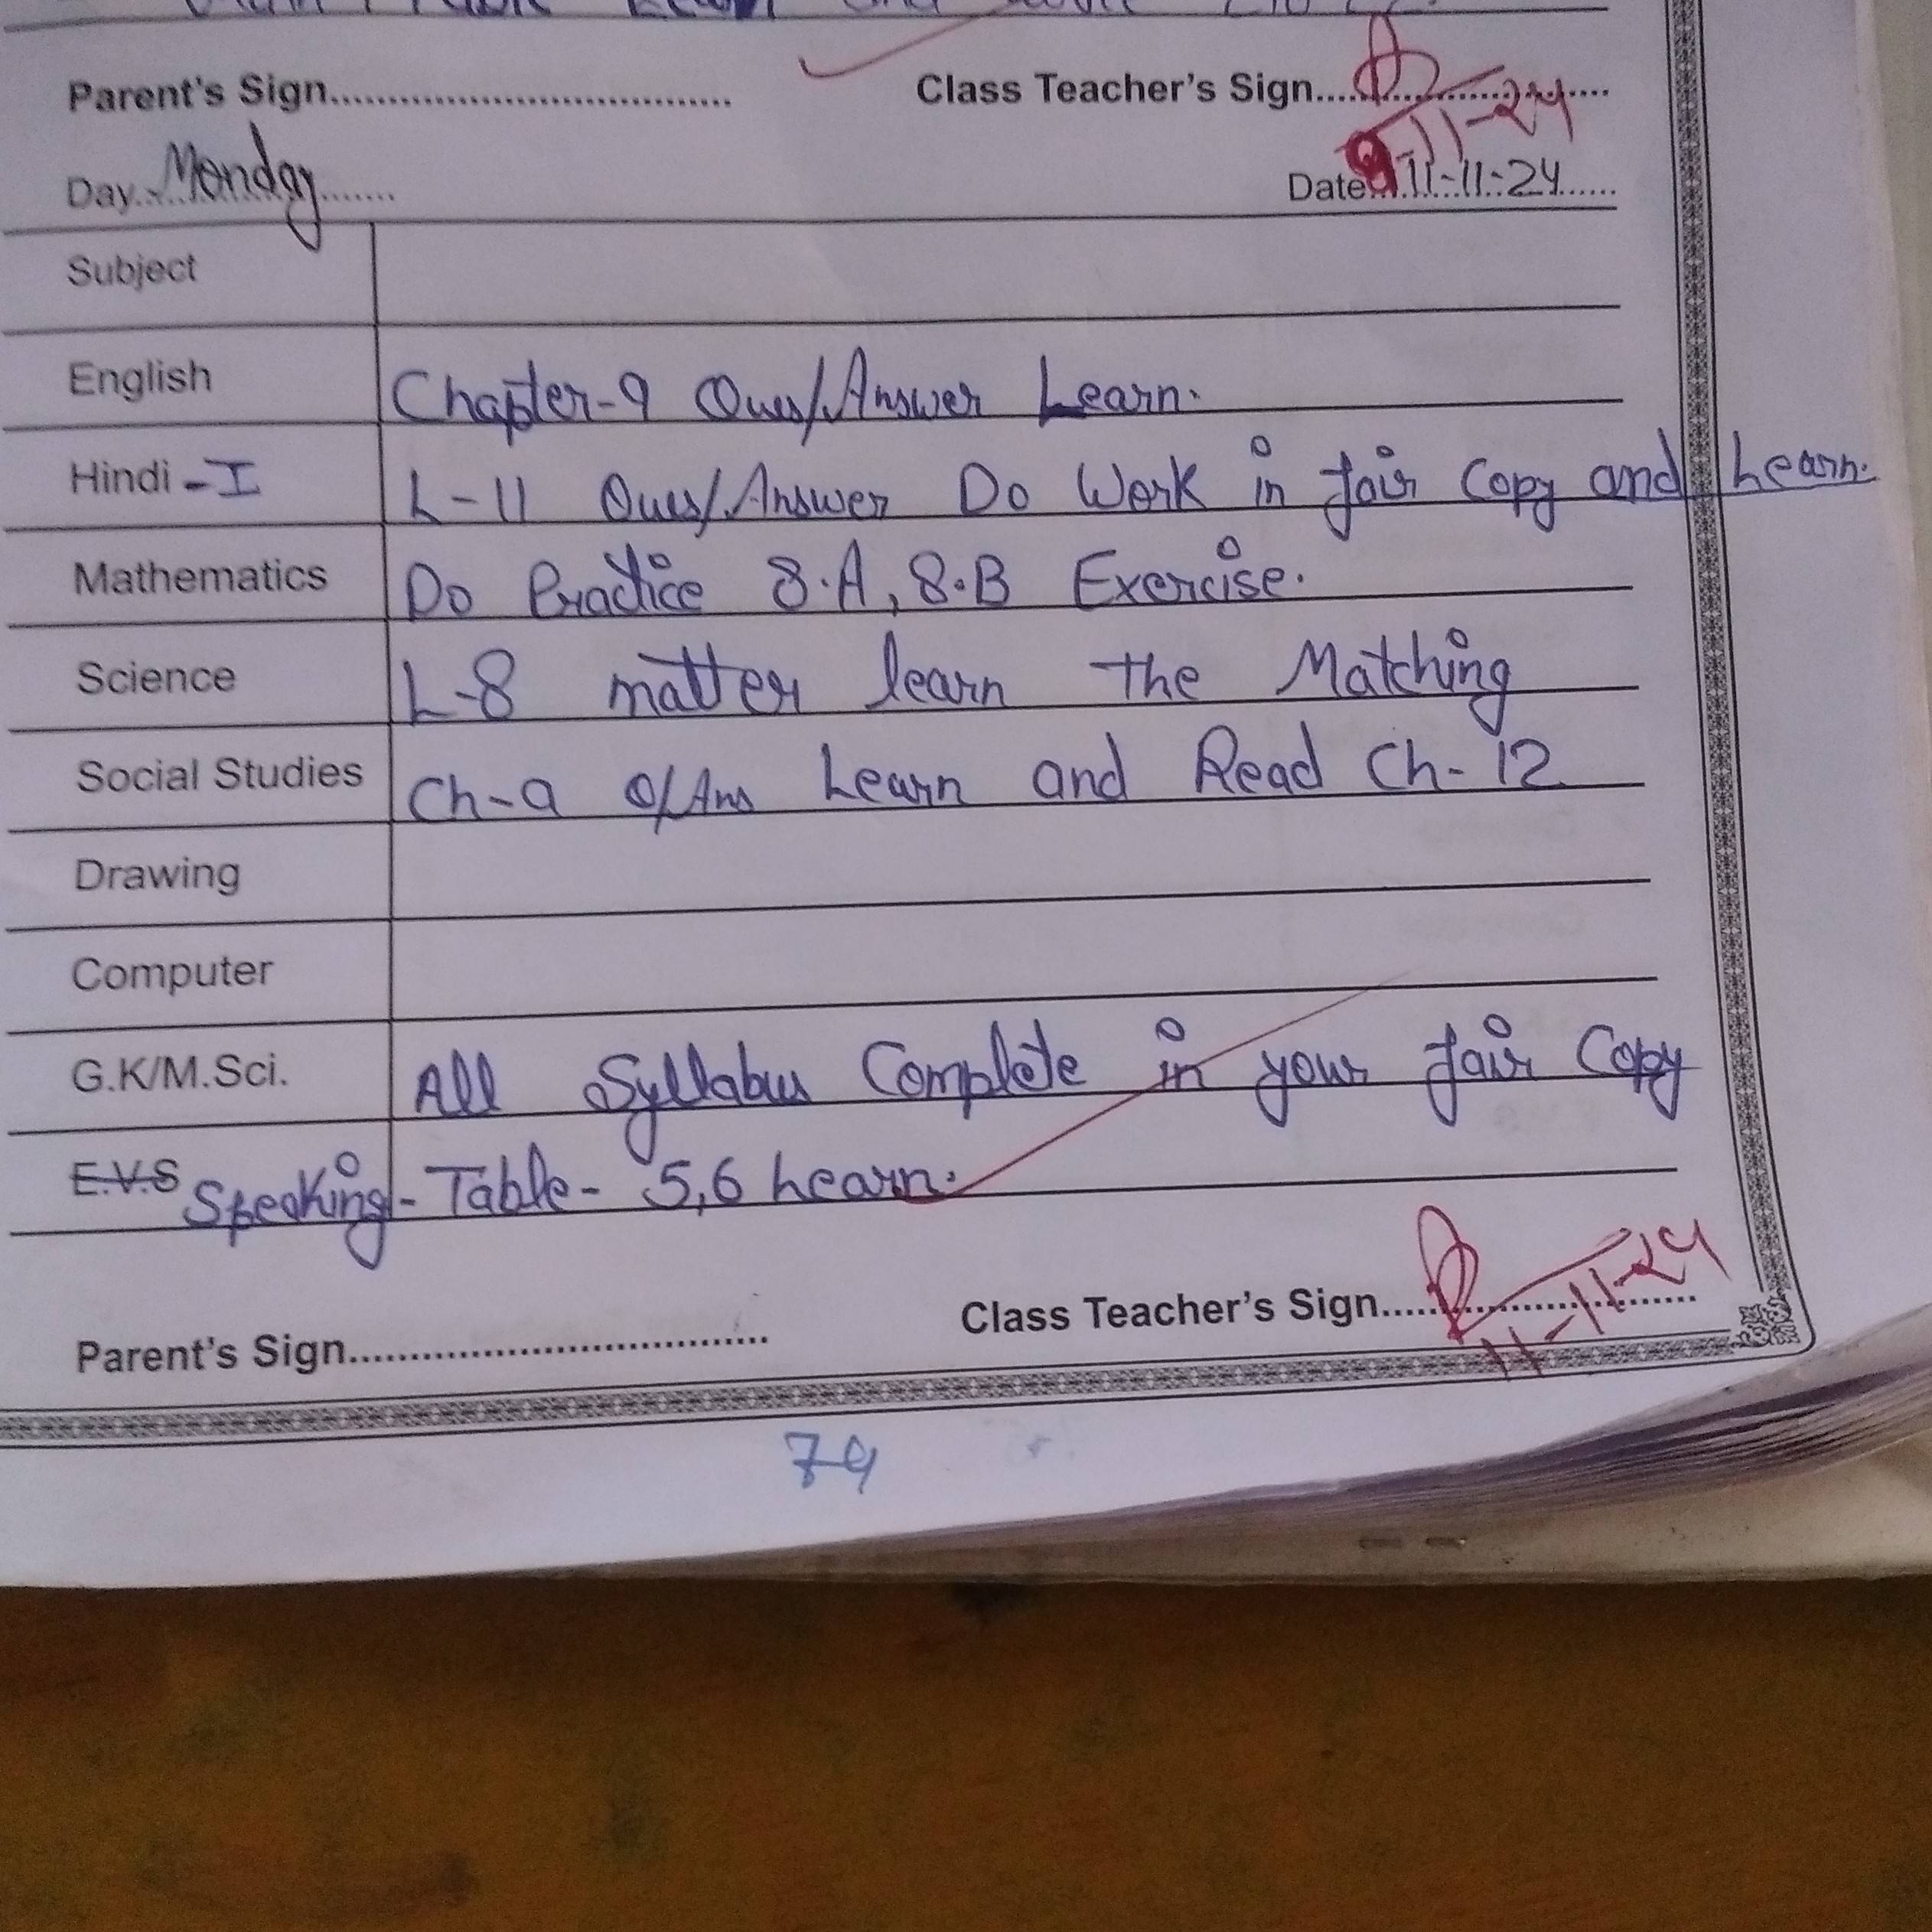 Parent's Sign.................................. Class Teacher's Sign..........................
9-11-24
Day...Monday....... Date....11-11-24......
Subject
English Chapter-9 Ques/Answer Learn.
Hindi - I L-11 Ques/Answer Do Work in fair Copy and Learn.
Mathematics Do Practice 8.A, 8.B Exercise.
Science L-8 matter learn the Matching
Social Studies Ch-9 Q/Ans Learn and Read Ch-12
Drawing
Computer
G.K/M.Sci. All Syllabus Complete in your fair Copy
E.V.S Speaking - Table - 5,6 Learn.
Parent's Sign................................... Class Teacher's Sign..........................
11-11-24
79